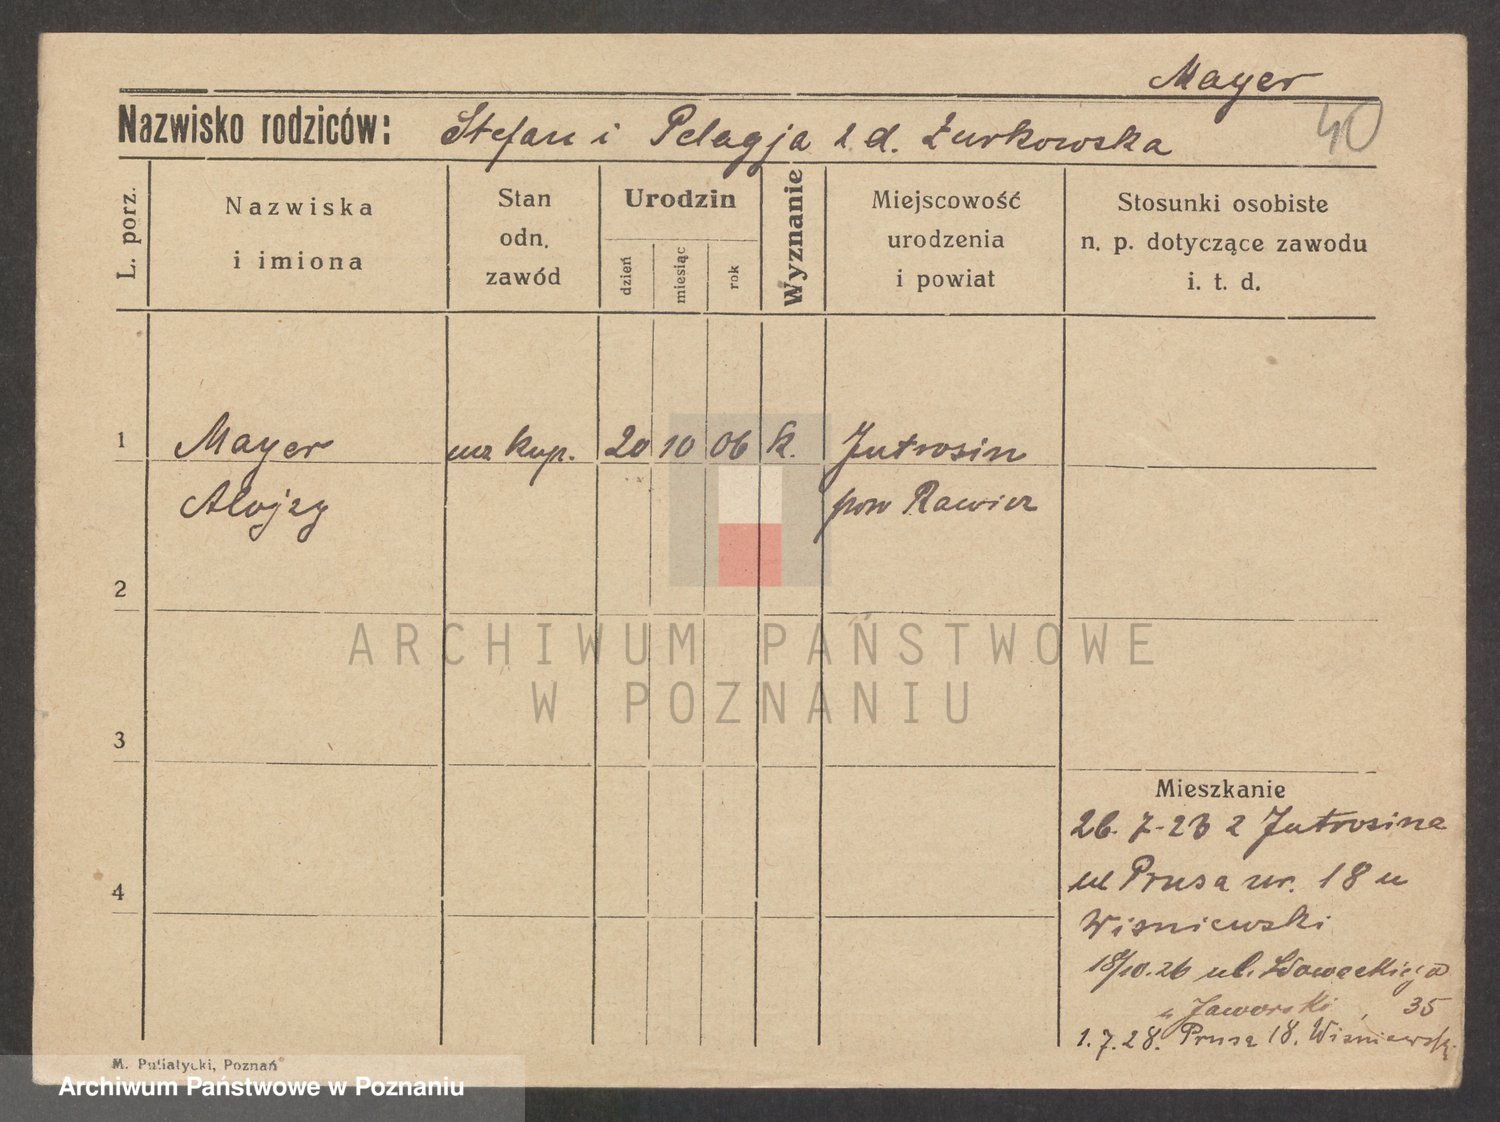 Mayer
Nazwisko rodziców: Stefan i Pelagja z d. Żurkowska
40
L. porz.
Nazwiska
i imiona
Stan
odn.
zawód
Urodzin
dzień
miesiąc
rok
Wyznanie
Miejscowość
urodzenia
i powiat
Stosunki osobiste
n. p. dotyczące zawodu
i. t. d.
1 Mayer ucz kup. 20 10 06 k. Jutrosin
Alojzy pow Rawicz
2
ARCHIWUM PAŃSTWOWE
W POZNANIU
3
Mieszkanie
26. 7-23 z Jutrosina
ul Prusa nr. 18 u
4
Wisniewski
18/10.26 ul. Słowackiego
u Jaworski 35
1.7.28. Prusa 18. Wisniewski
M. Putiatycki, Poznań
Archiwum Państwowe w Poznaniu